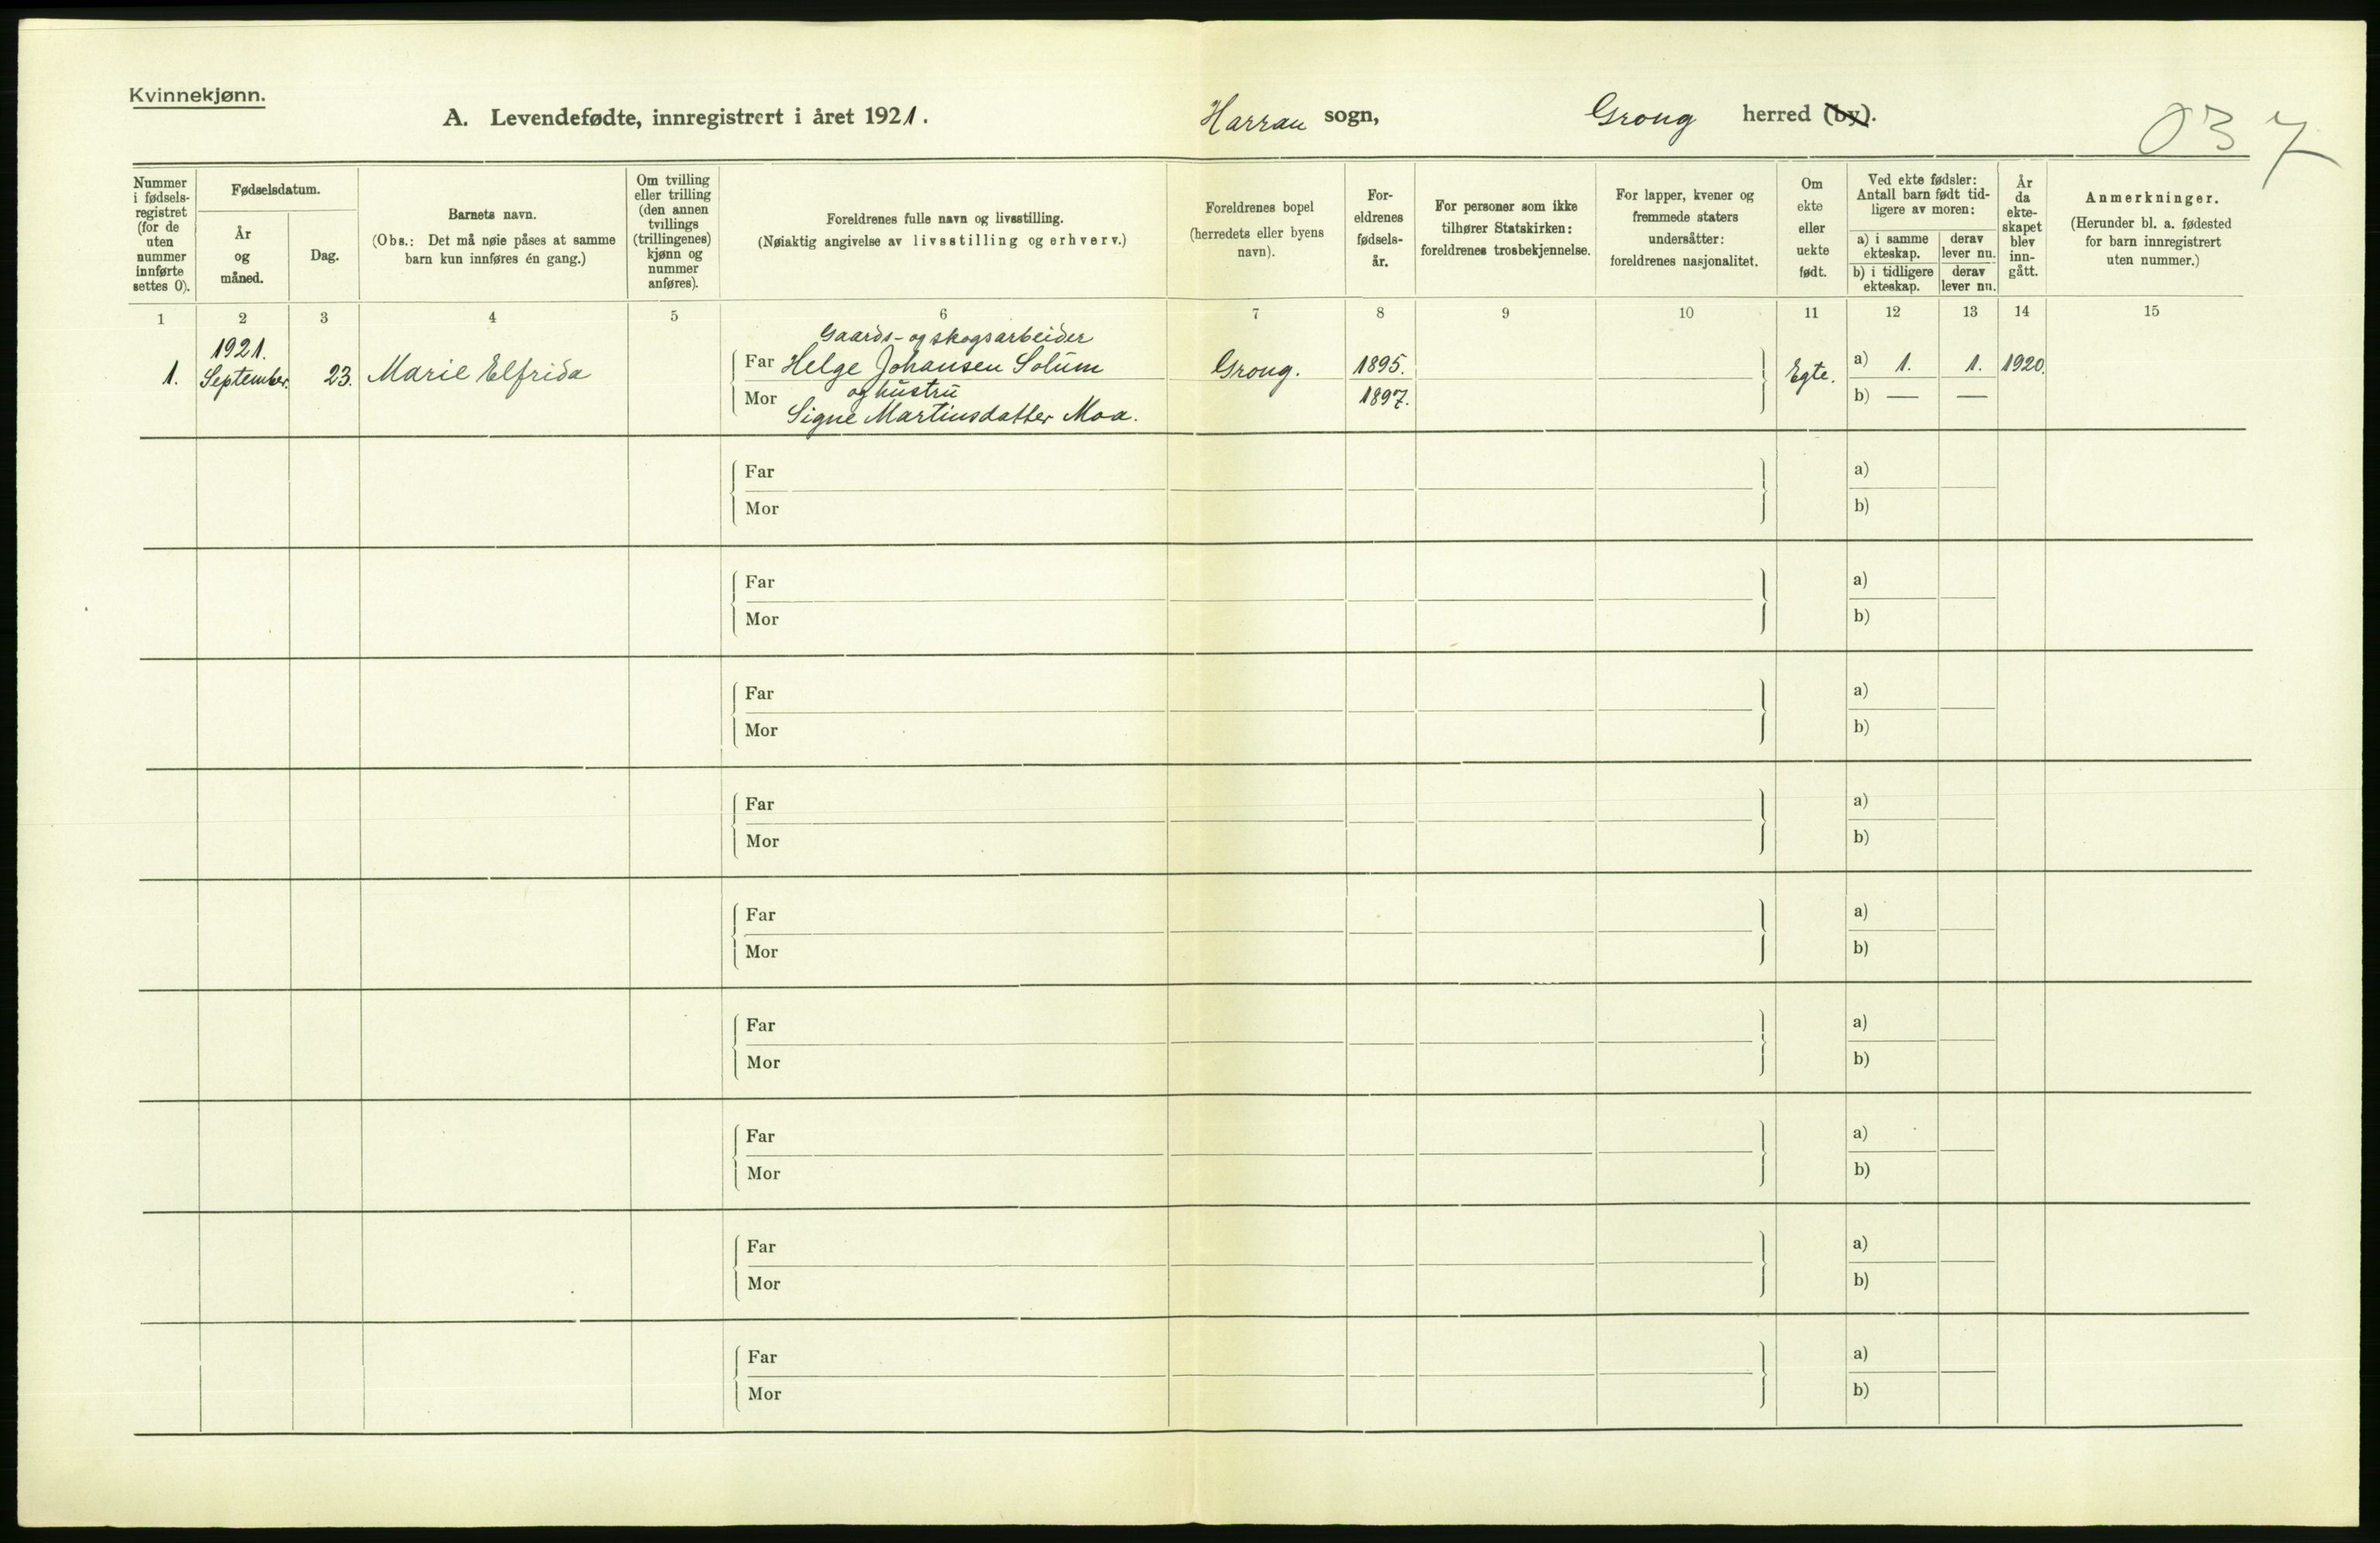 Kvinnekjønn.
A. Levendefødte, innregistrert i året 1921.
Harran sogn,
Grong herred (by).
03 7
Nummer
i fødsels-
registret
(for de
uten
nummer
innførte
settes 0).
Fødselsdatum.
År
og
måned.
Dag.
Barnets navn.
(Obs.: Det må nøie påses at samme
barn kun innføres én gang.)
Om tvilling
eller trilling
(den annen
tvillings
(trillingenes)
kjønn og
nummer
anføres).
Foreldrenes fulle navn og livsstilling.
(Nøiaktig angivelse av livsstilling og erhverv.)
Foreldrenes bopel
(herredets eller byens
navn).
For-
eldrenes
fødsels-
år.
For personer som ikke
tilhører Statskirken:
foreldrenes trosbekjennelse.
For lapper, kvener og
fremmede staters
undersåtter:
foreldrenes nasjonalitet.
Om
ekte
eller
uekte
født.
Ved ekte fødsler:
Antall barn født tid-
ligere av moren:
a) i samme
ekteskap.
derav
lever nu.
b) i tidligere
ekteskap.
derav
lever nu.
År
da
ekte-
skapet
blev
inn-
gått.
Anmerkninger.
(Herunder bl. a. fødested
for barn innregistrert
uten nummer.)
1 2 3 4 5 6 7 8 9 10 11 12 13 14 15
1.
1921.
September.
23.
Marie Elfrida
Gaards- og skogsarbeider
Far Helge Johansen Solum
og hustru
Mor Signe Martinsdatter Moa.
Grong.
1895.
1897.
Egte.
a) 1. 1.
b) — —
1920.
Far a)
Mor b)
Far a)
Mor b)
Far a)
Mor b)
Far a)
Mor b)
Far a)
Mor b)
Far a)
Mor b)
Far a)
Mor b)
Far a)
Mor b)
Far a)
Mor b)